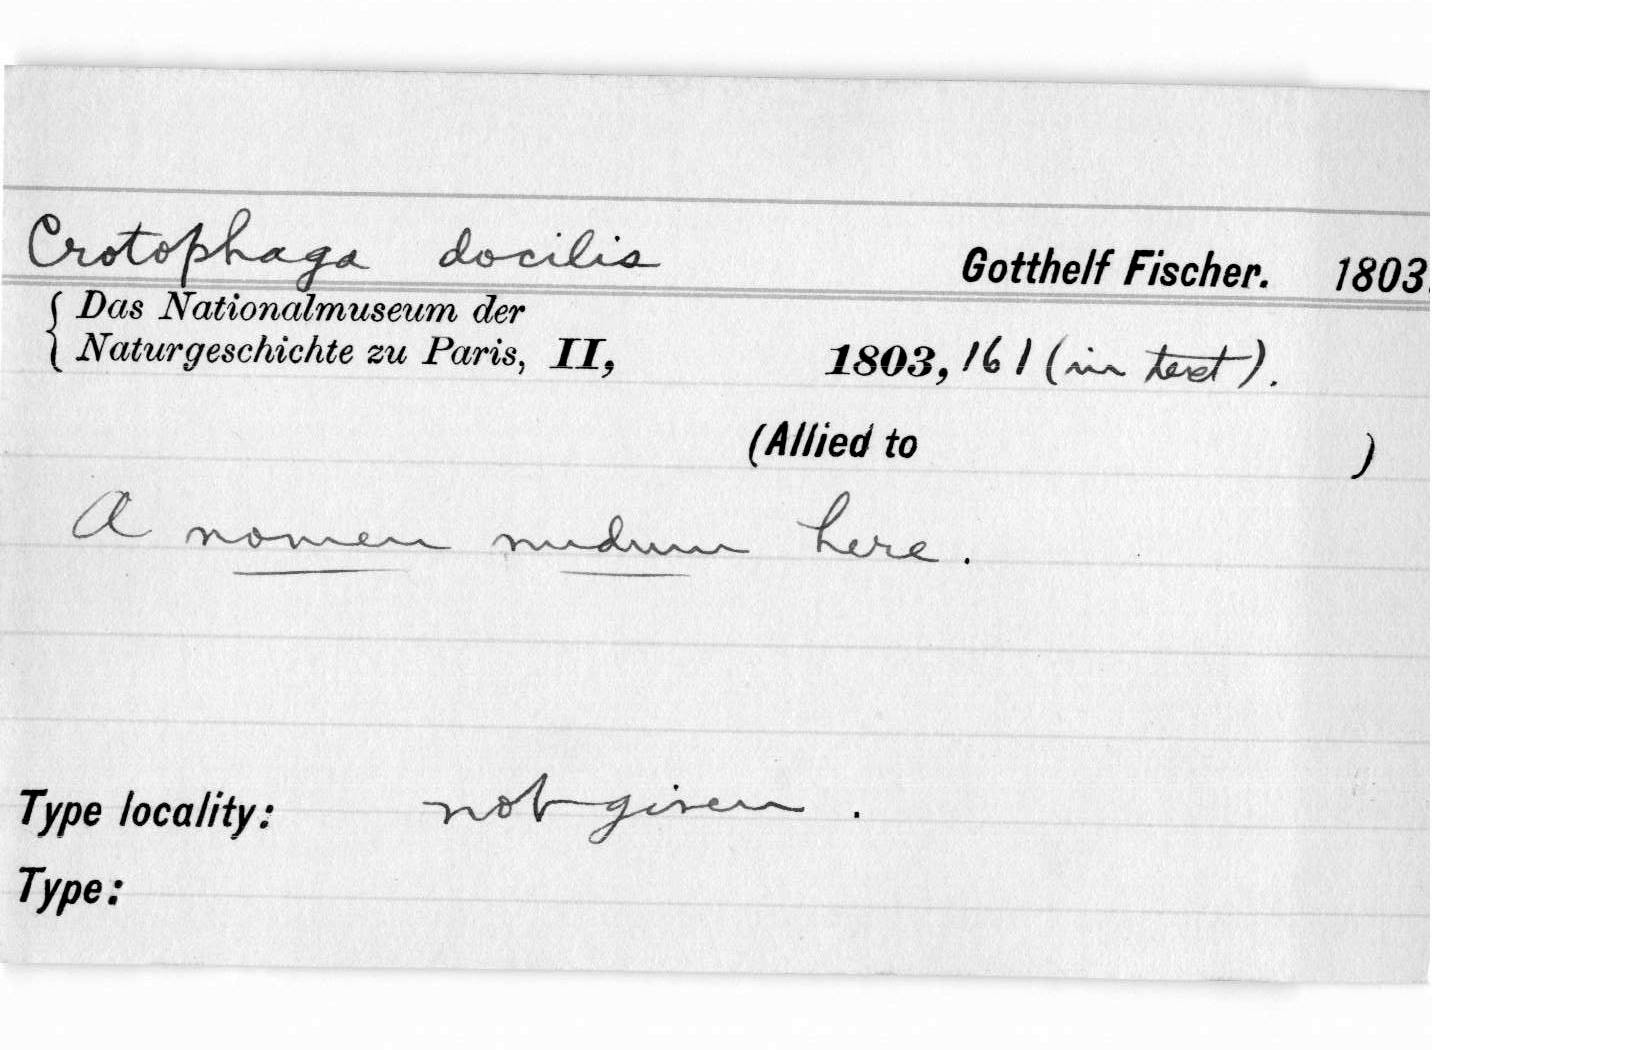 Crotophaga docilis Gotthelf Fischer. 1803.
{ Das Nationalmuseum der
Naturgeschichte zu Paris, II, 1803, 161 (in text).
(Allied to )
A nomen nudum here.
Type locality: not given.
Type: